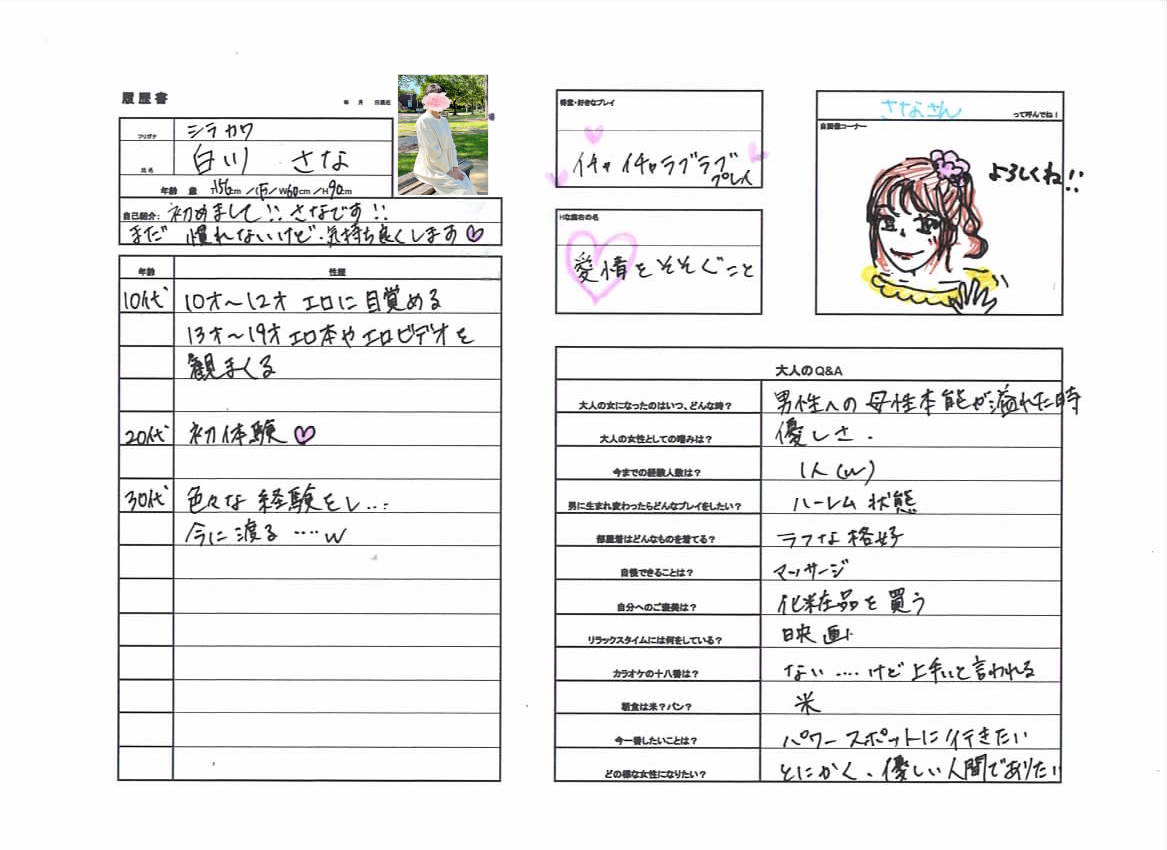 履歴書
年 月 日現在
フリガナ シラカワ
氏名 白川 さな
年齢 歳 T156cm / /W60cm/H90cm
自己紹介: 初めまして!! さなです!!
まだ 慣れないけど、気持ち良くします♡
年齢 性歴
10代 10才〜12才 エロに目覚める
13才〜19才 エロ本やエロビデオを
観まくる
20代 初体験♡
30代 色々な経験をし...
今に渡る ....w
得意・好きなプレイ
イチャイチャラブラブ
プレイ
Hな座右の名
愛情をそそぐこと
さなさん って呼んでね!
自画像コーナー
よろしくね!!
大人のQ&A
大人の女になったのはいつ、どんな時? 男性への母性本能が溢れた時
大人の女性としての嗜みは? 優しさ.
今までの経験人数は? 1人(w)
男に生まれ変わったらどんなプレイをしたい? ハーレム状態
部屋着はどんなものを着てる? ラフな格好
自慢できることは? マッサージ
自分へのご褒美は? 化粧品を買う
リラックスタイムには何をしている? 映画
カラオケの十八番は? ない....けど上手いと言われる
朝食は米?パン? 米
今一番したいことは? パワースポットに行きたい
どの様な女性になりたい? とにかく、優しい人間でありたい